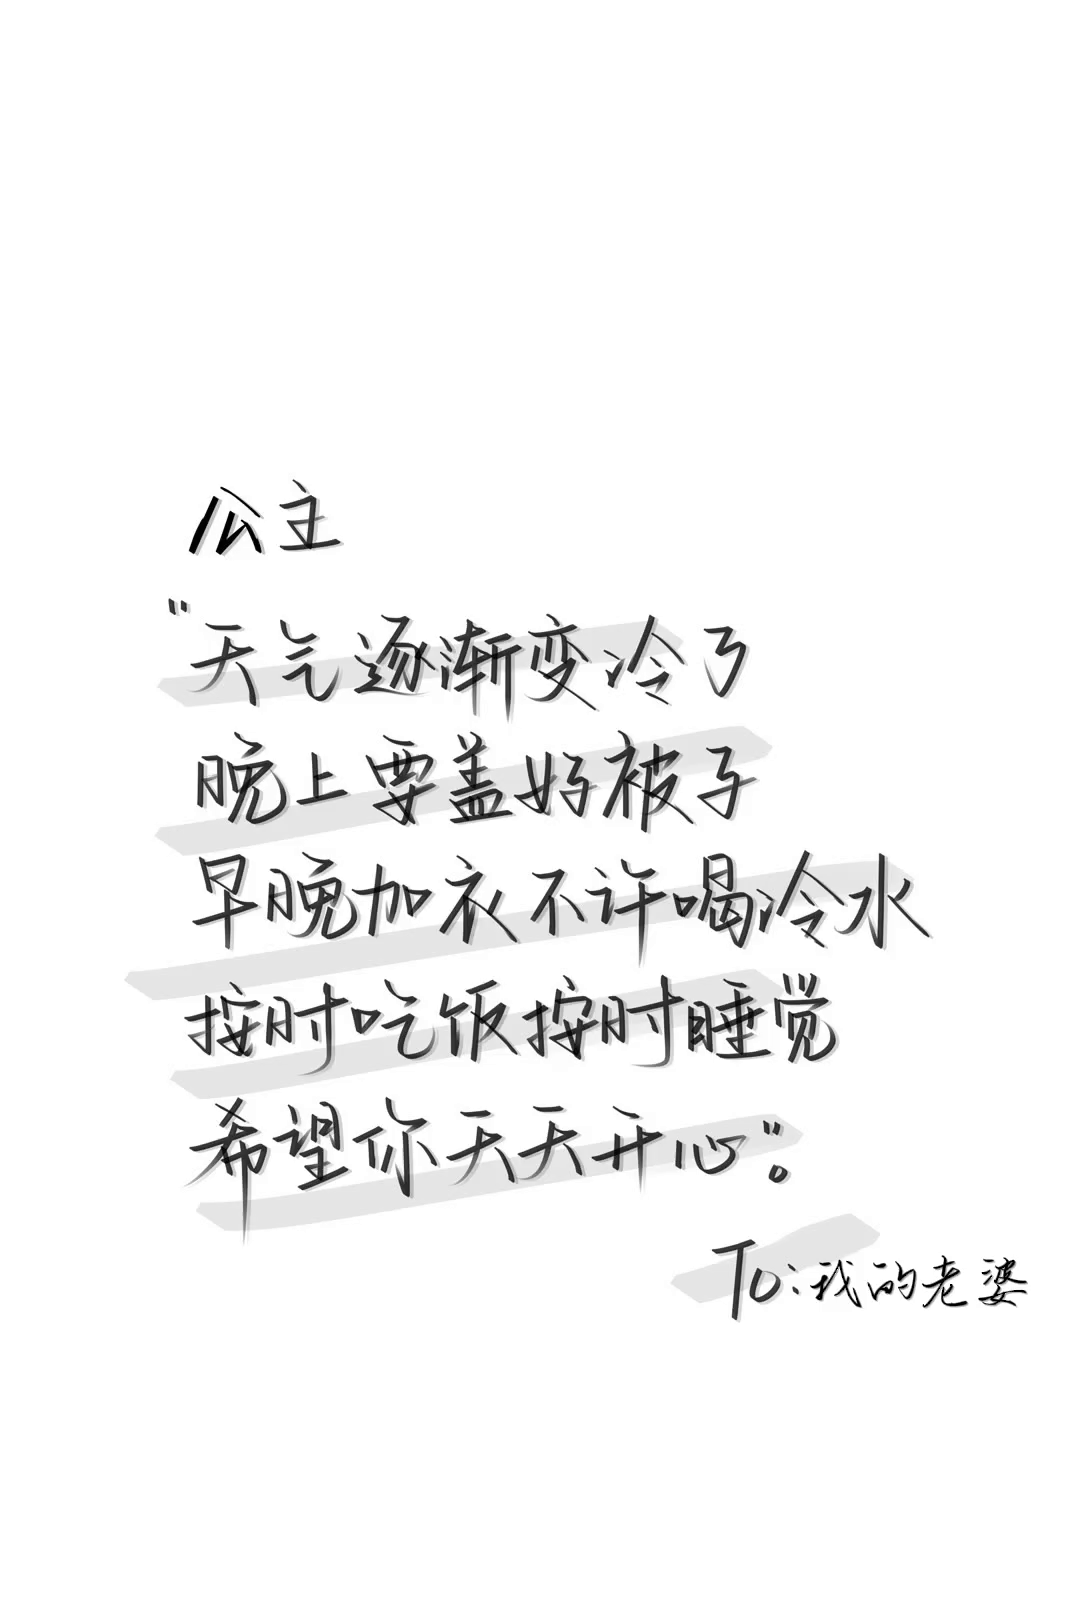 公主
"天气逐渐变冷了
晚上要盖好被子
早晚加衣不许喝冷水
按时吃饭按时睡觉
希望你天天开心"。
To:我的老婆